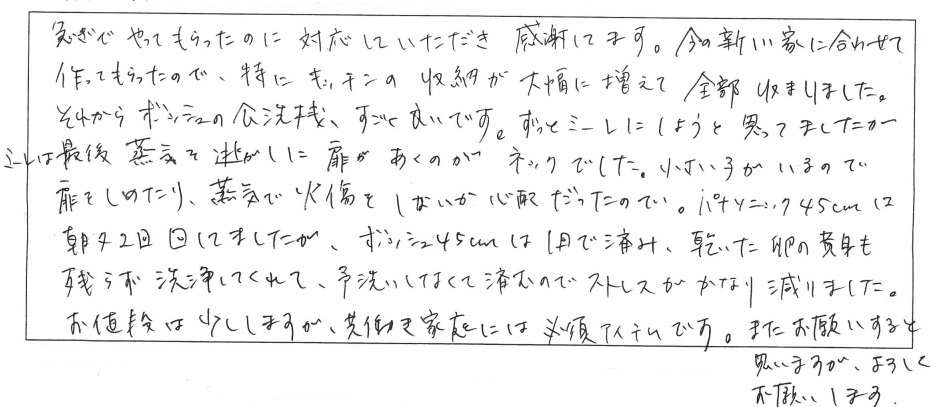 急ぎでやってもらったのに対応していただき感謝してます。今の新しい家に合わせて
作ってもらったので、特にキッチンの収納が大幅に増えて全部収まりました。
それからボッシュの食洗機、すごく良いです。ずっとミーレにしようと思ってましたが
ミーレは最後蒸気を逃がしに扉があくのがネックでした。小さい子がいるので
扉をしめたり、蒸気で火傷をしないか心配だったので。パナソニック45cmは
朝夕2回回してましたが、ボッシュ45cmは1回で済み、乾いた卵の黄身も
残らず洗浄してくれて、予洗いしなくて済むのでストレスがかなり減りました。
お値段は少ししますが、共働き家庭には必須アイテムです。またお願いすると
思いますが、よろしく
お願いします。